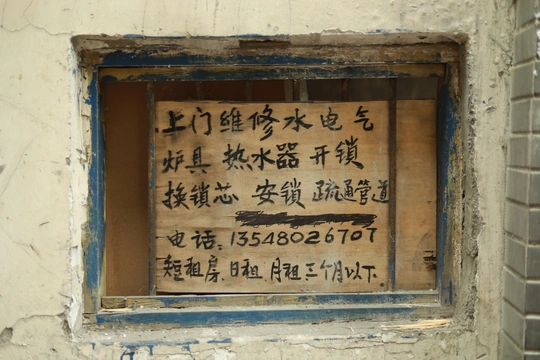 上门维修水电气
炉具 热水器 开锁
换锁芯 安锁 疏通管道
电话:13548026707
短租房.日租 月租 三个月以下.